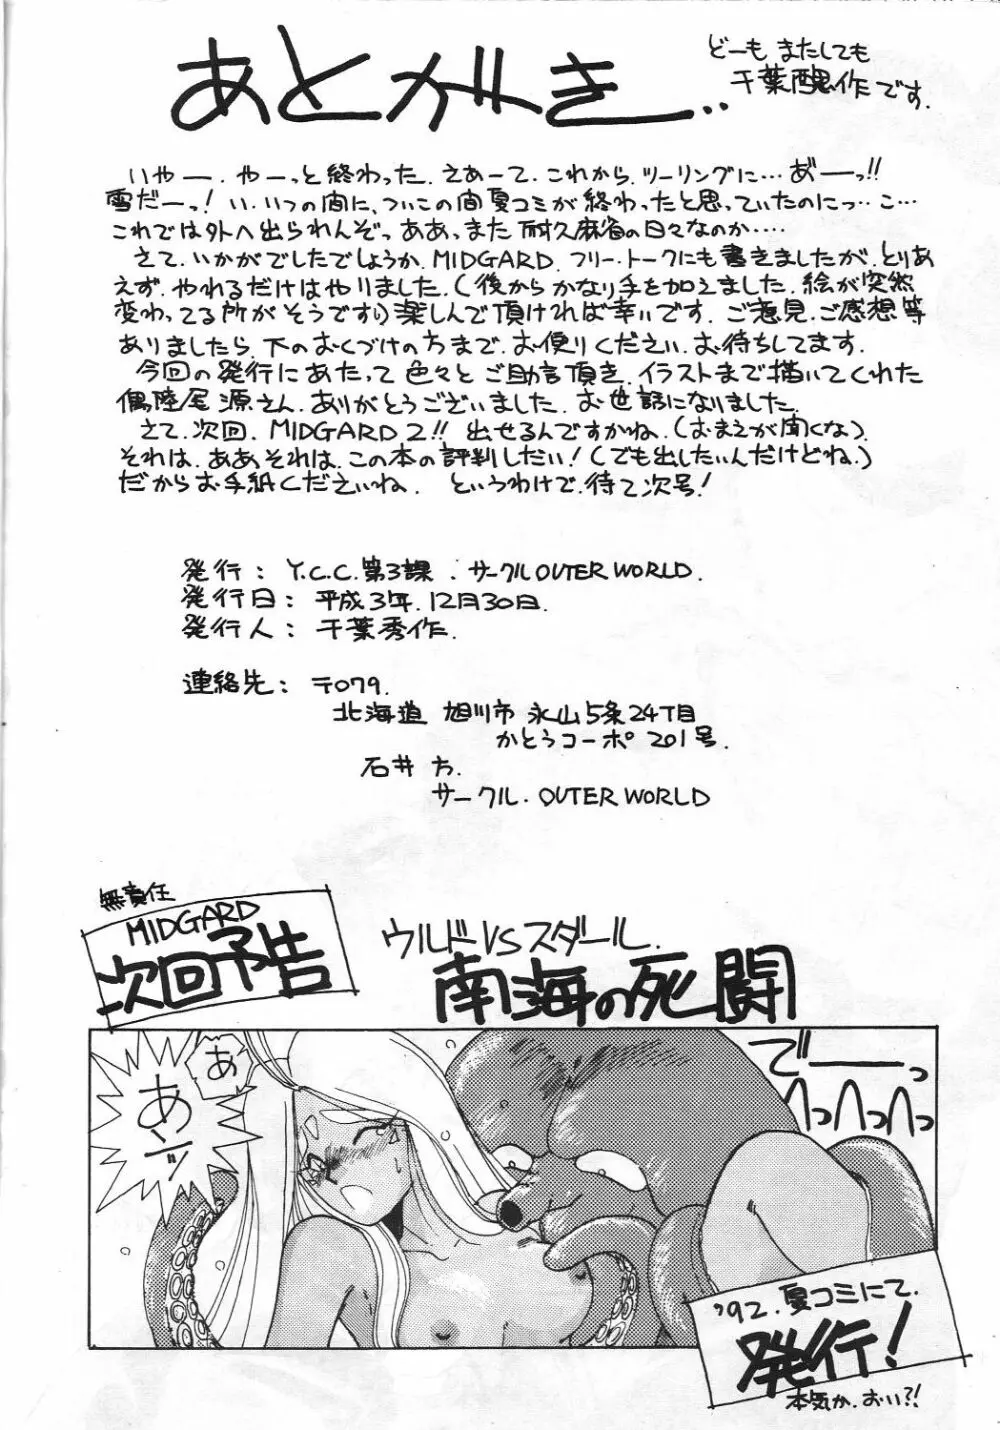 あとがき..
どーも またしても
千葉醜作です.
いやー. やーっと終わった. さあーて. これから. ツーリングに…あ゛ーっ!!
雪だーっ! い. いつの間に. ついこの間夏コミが終わったと思っていたのにっ…こ…
これでは外へ出られんぞっ ああっまた耐久麻雀の日々なのか‥‥
さて. いかがでしたでしょうか. MIDGARD. フリー・トークにも書きましたが. とりあ
えず. やれるだけはやりました. (後からかなり手を加えました. 絵が突然
変わってる所がそうです) 楽しんで頂ければ幸いです. ご意見. ご感想等
ありましたら. 下のおくづけのちまで. お便りください. お待ちしてます.
今回の発行にあたって色々とご助言頂き. イラストまで描いてくれた
偶陸尾源さん. ありがとうございました. お世話になりました.
さて. 次回. MIDGARD2!! 出せるんですかね. (おまえが聞くな).
それは. ああそれは. この本の評判しだい! (でも出したいんだけどね.)
だからお手紙くださいね. というわけで. 待て次号!
発行: Y.C.C.第3課. サークルOUTER WORLD.
発行日: 平成3年.12月30日.
発行人: 千葉秀作.
連絡先: 〒079.
北海道 旭川市 永山5条24丁目
かとうコーポ 201号.
石井 方.
サークル. OUTER WORLD
無責任
MIDGARD
次回予告
ウルドVSスダール.
南海の死闘
あ
あンッ
でーーっ
へっへっへっ
'92. 夏コミにて.
発行!
本気か. おい?!